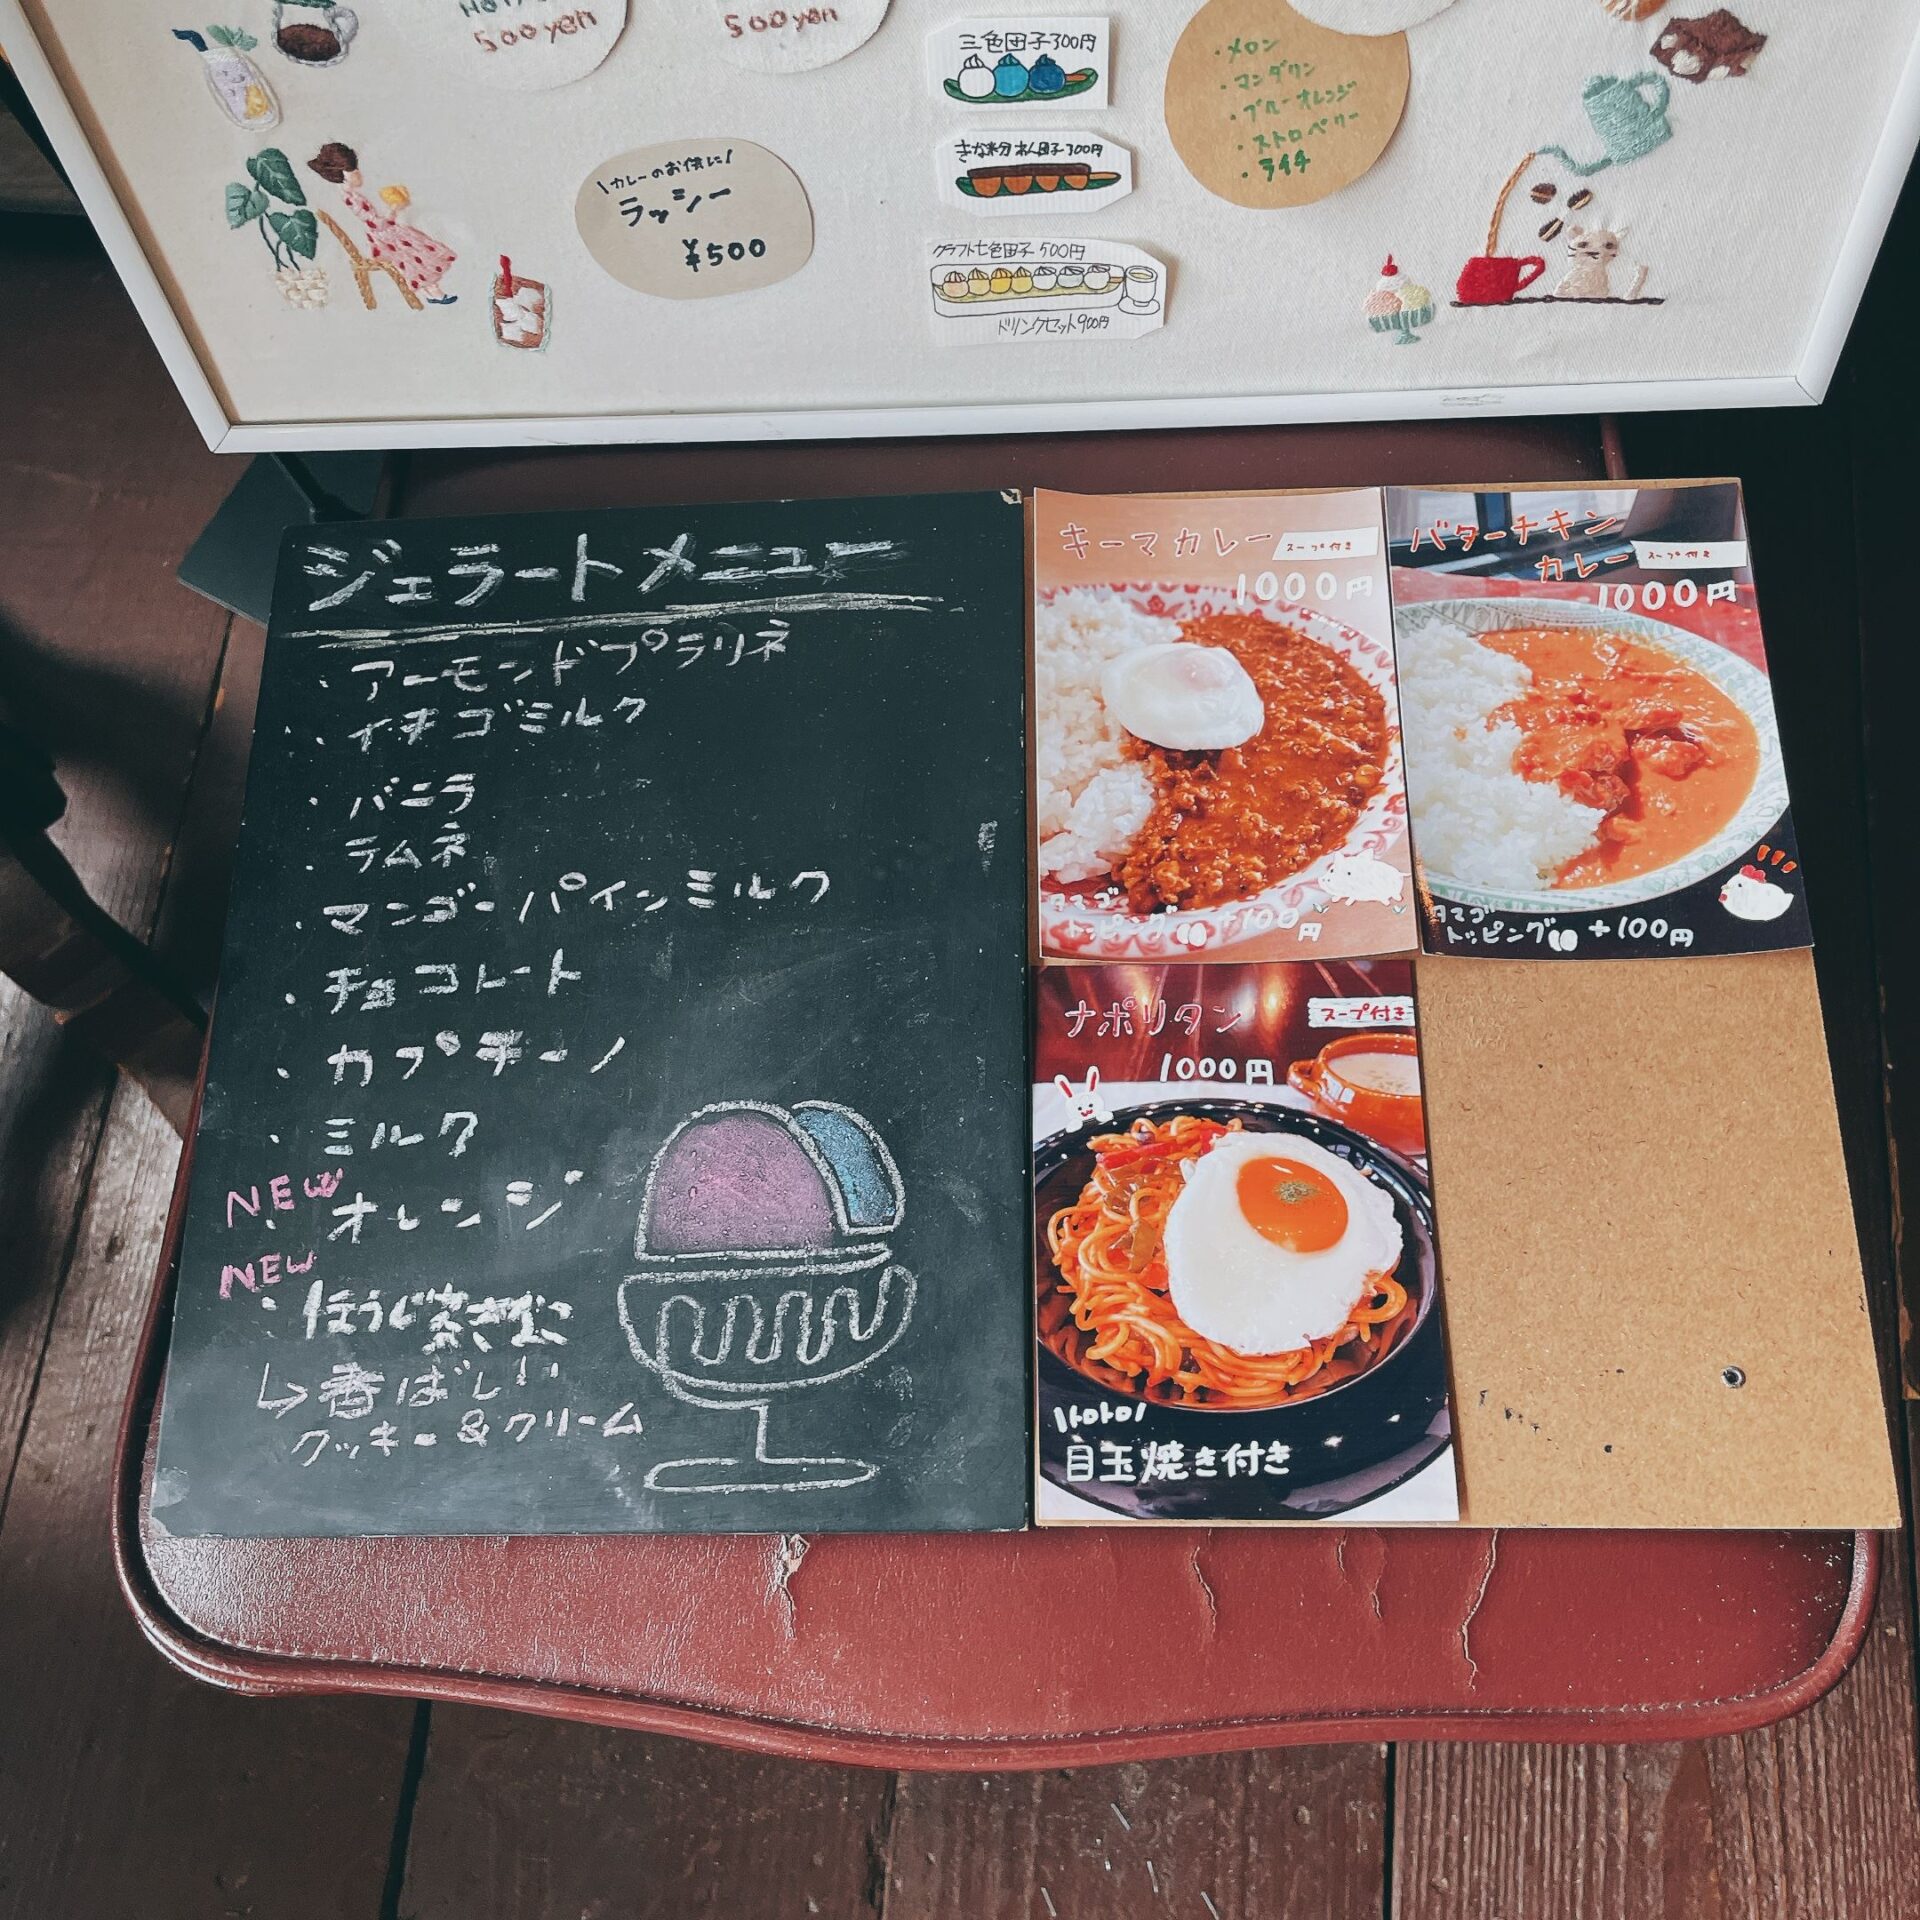 500yen
500yen
三色団子300円
きな粉あん団子300円
クラフト七色団子500円
ドリンクセット900円
・メロン
・マンダリン
・ブルーオレンジ
・ストロベリー
・ライチ
\カレーのお供に/
ラッシー
¥500
ジェラートメニュー
・アーモンドプラリネ
・イチゴミルク
・バニラ
・ラムネ
・マンゴーパインミルク
・チョコレート
・カプチーノ
・ミルク
NEW
・オレンジ
NEW
・ほうじ茶きなこ
↳香ばしい
クッキー&クリーム
キーマカレー スープ付き
1000円
タマゴ
トッピング +100円
バターチキン
カレー スープ付き
1000円
タマゴ
トッピング +100円
ナポリタン スープ付き
1000円
目玉焼き付き